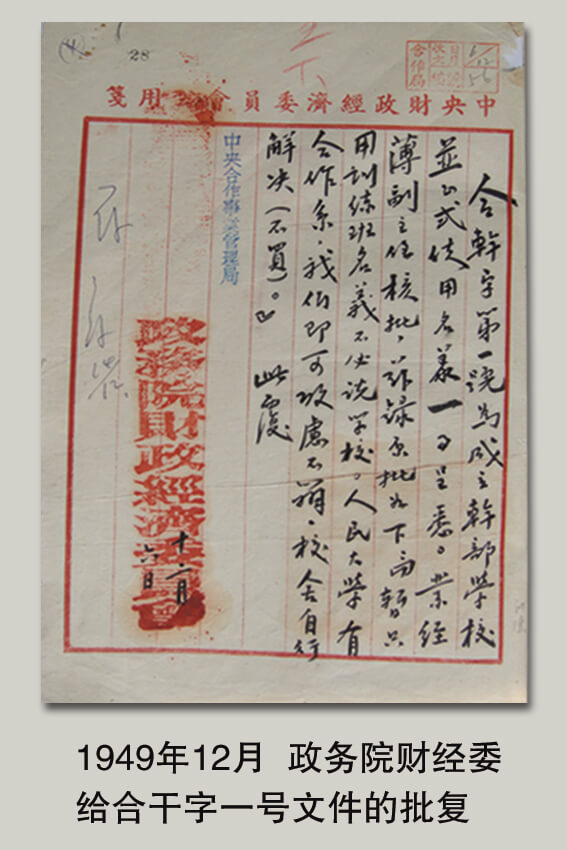 28
合作局
中央財政經濟委員會用箋
合幹字第一號為成立幹部學校
並正式使用名義一事呈悉。業經
薄副主任核批，茲錄原批如下高暫只
用訓練班名義不必說學校。人民大學有
合作系，我們即可攷慮不辦，校舍自行
解决（不買）。』 此覆
中央合作事業管理局
政務院財政經濟委員會
十二月
六日
1949年12月 政务院财经委
给合干字一号文件的批复